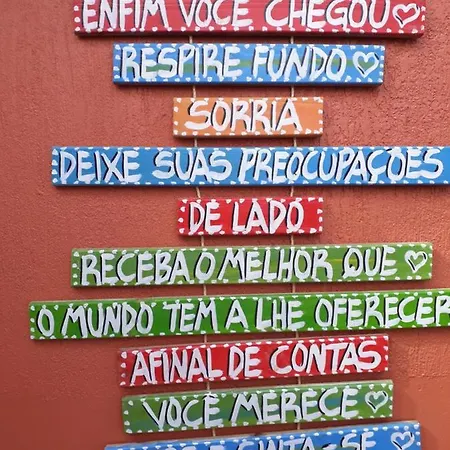 ENFIM VOCÊ CHEGOU
RESPIRE FUNDO
SORRIA
DEIXE SUAS PREOCUPAÇÕES
DE LADO
RECEBA O MELHOR QUE
O MUNDO TEM A LHE OFERECER
AFINAL DE CONTAS
VOCÊ MERECE
SINTA-SE